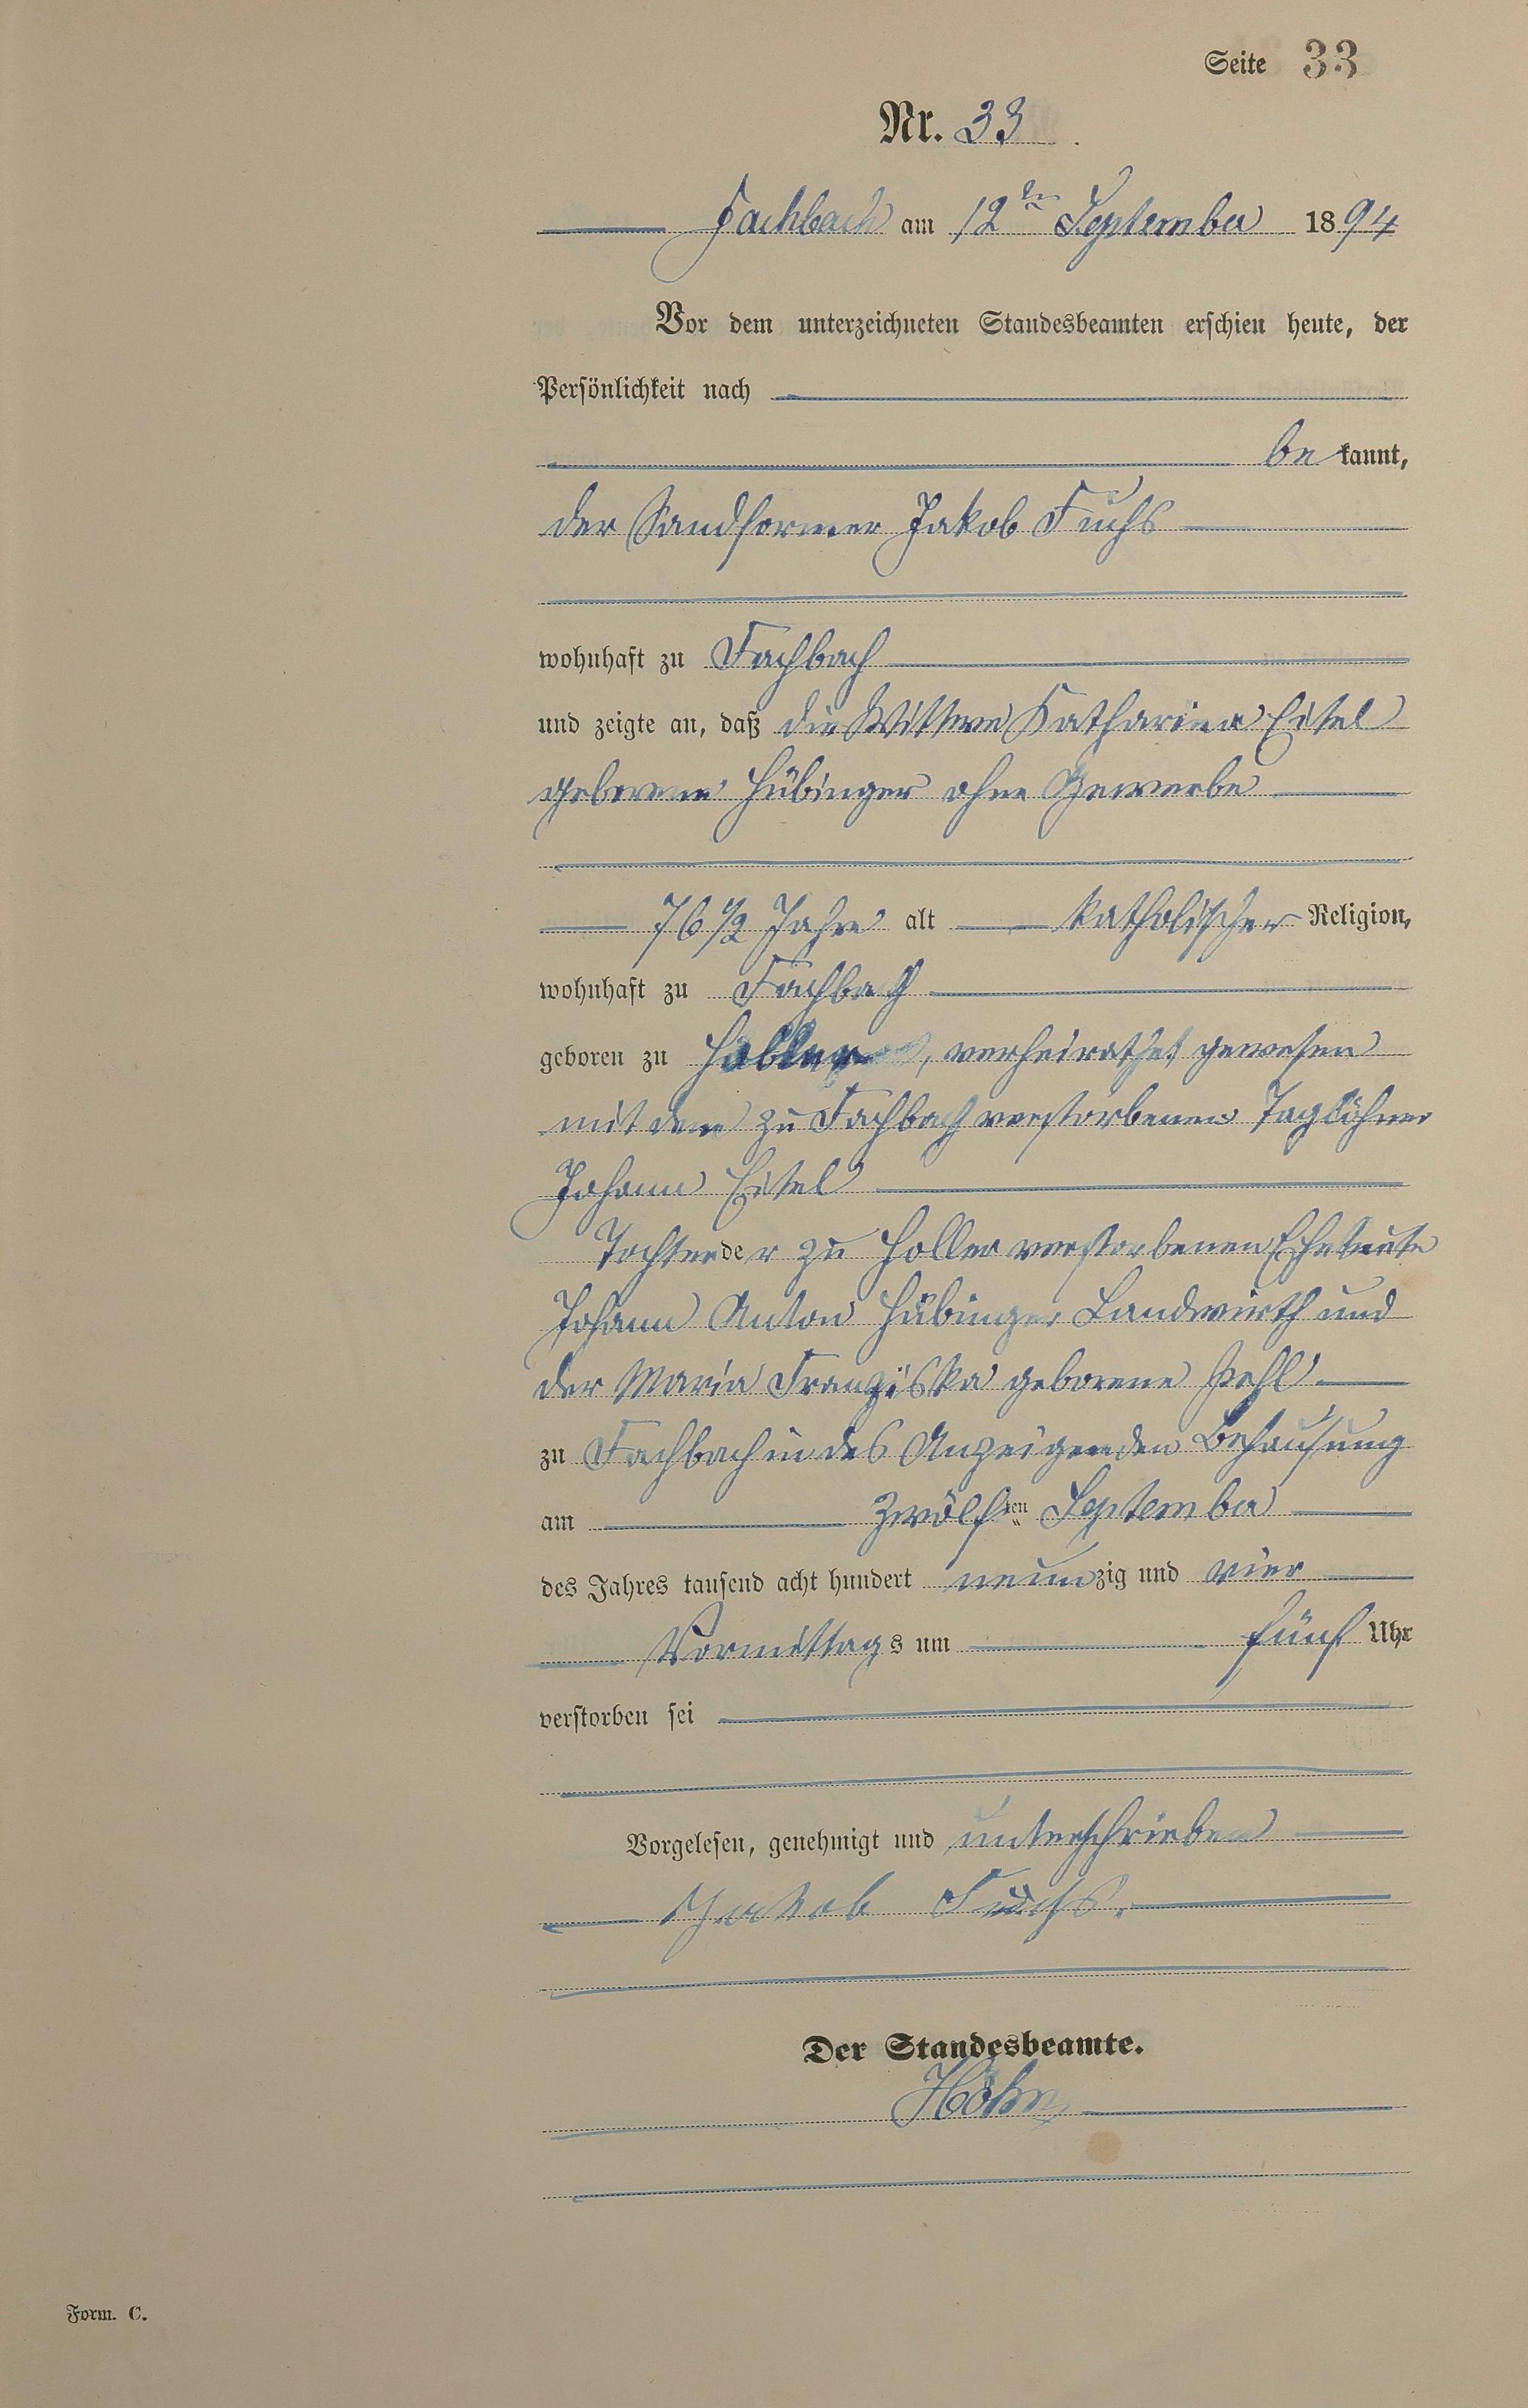 Seite 33
Nr. 33.
Fachbach am 12ten September 1894
Vor dem unterzeichneten Standesbeamten erschien heute, der
Persönlichkeit nach
be kannt,
der Sandformer Jakob Fuchs
wohnhaft zu Fachbach
und zeigte an, daß die Wittwe Katharina Eitel
geborene Hübinger ohne Gewerbe
76 1/2 Jahre alt katholischer Religion,
wohnhaft zu Fachbach
geboren zu Holler, verheirathet gewesen
mit dem zu Fachbach verstorbenen Taglöhner
Johann Eitel
Tochter der zu Holler verstorbenen Eheleute
Johann Anton Hübinger Landwirth und
der Maria Franziska geborene
zu Fachbach in des Anzeigenden Behausung
am zwölften September
des Jahres tausend acht hundert neunzig und vier
Vormittags um fünf Uhr
verstorben sei
Vorgelesen, genehmigt und unterschrieben
Jakob Fuchs.
Der Standesbeamte.
Höhn
Form. C.